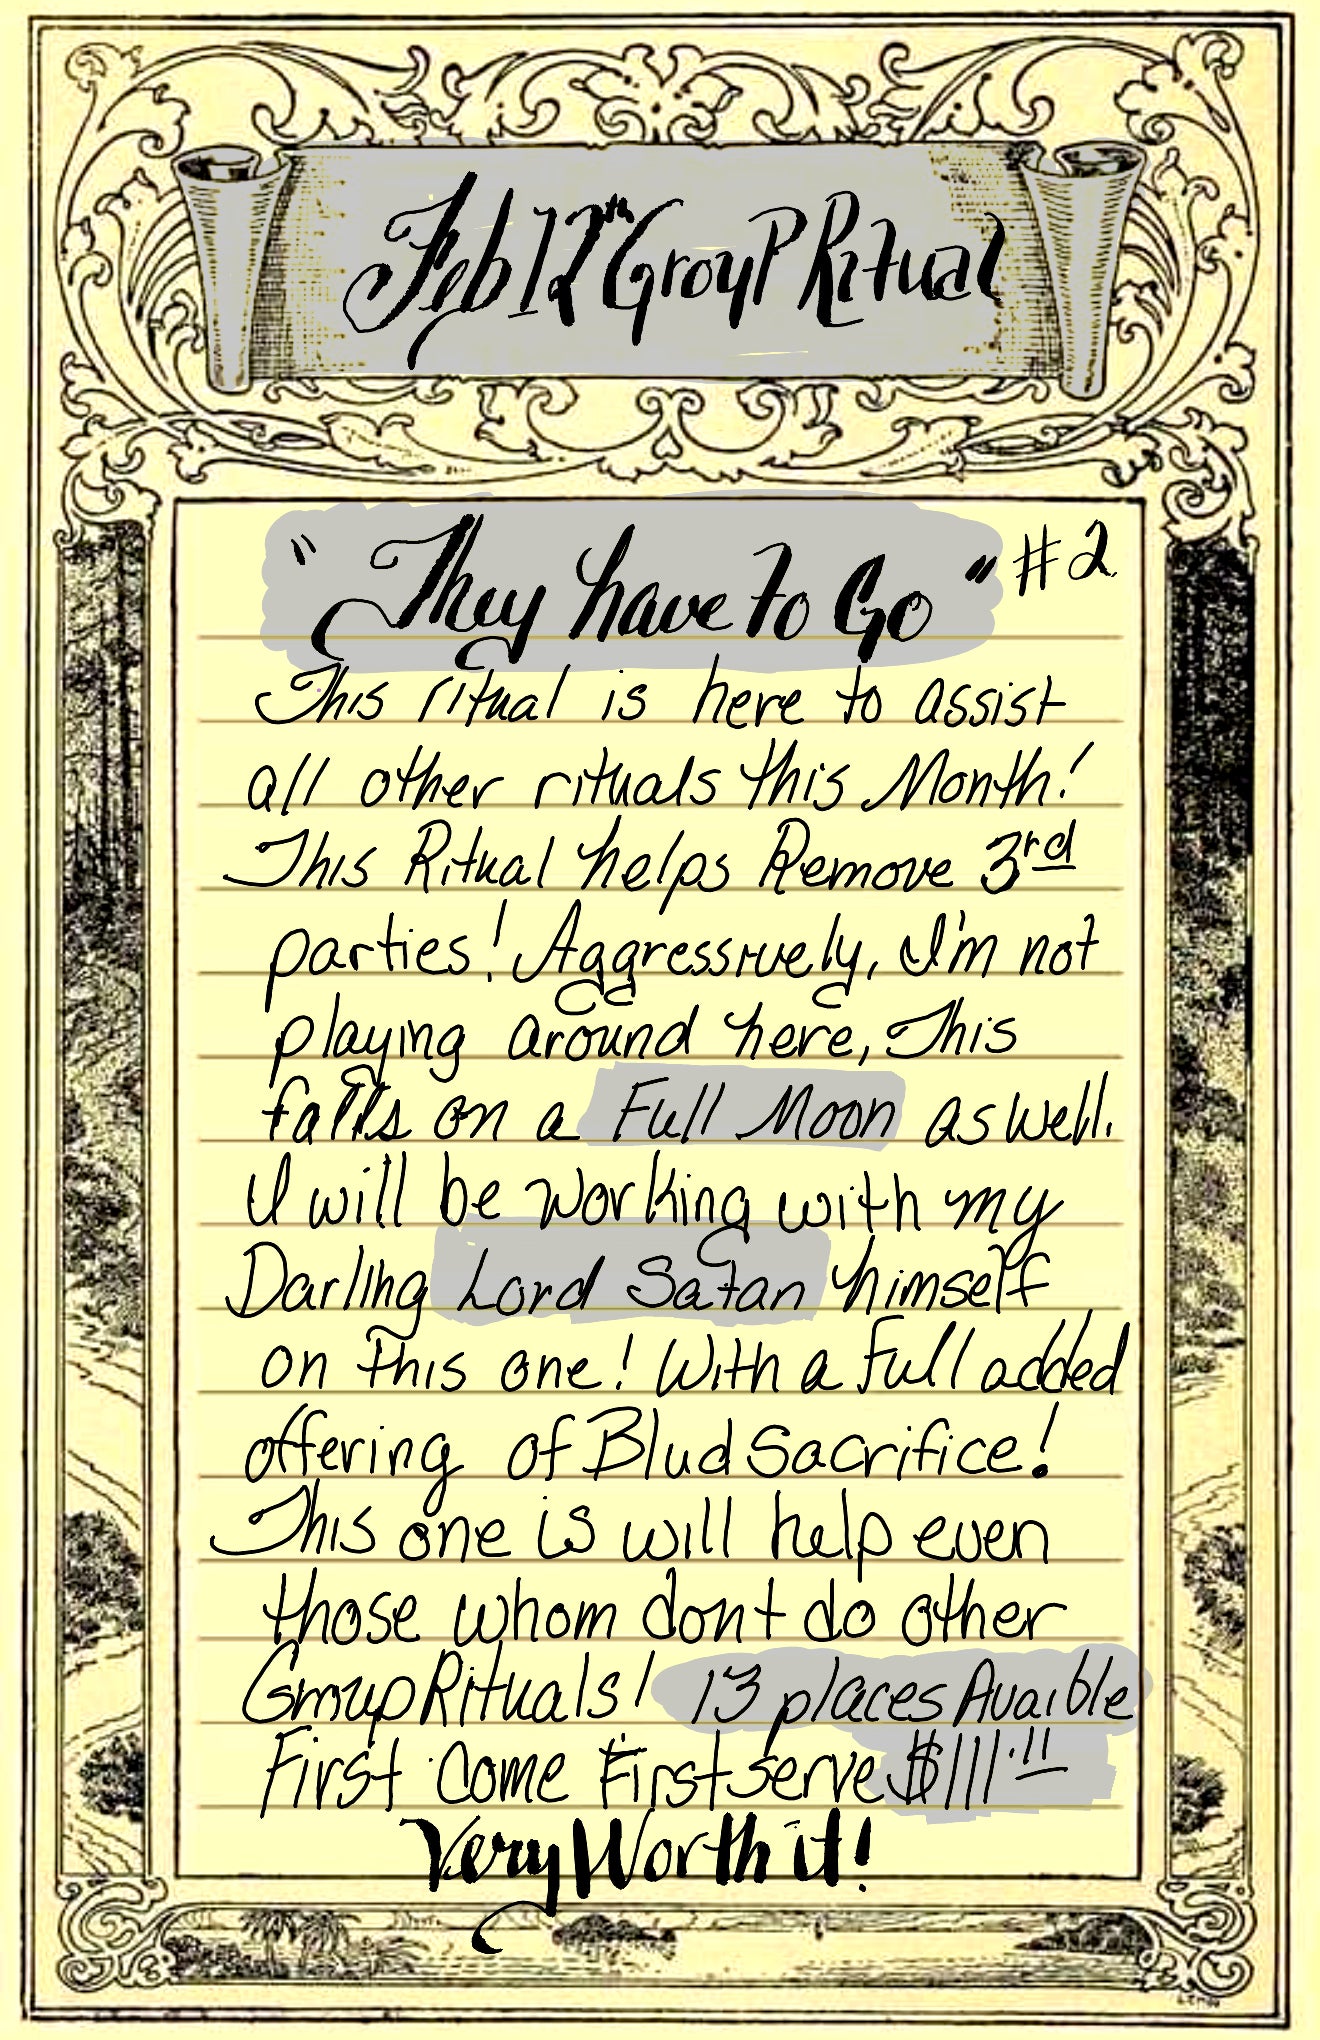 Feb 12th Group Ritual
"They have to Go" #2
This ritual is here to assist
all other rituals this Month!
This Ritual helps Remove 3rd
parties! Aggressively, I'm not
playing around here, This
falls on a Full Moon as well.
I will be working with my
Darling Lord Satan himself
on this one! With a full added
offering of Blud Sacrifice!
This one is will help even
those whom dont do other
Group Rituals! 13 places Avaible
First Come First serve $111.11
Very Worth it!